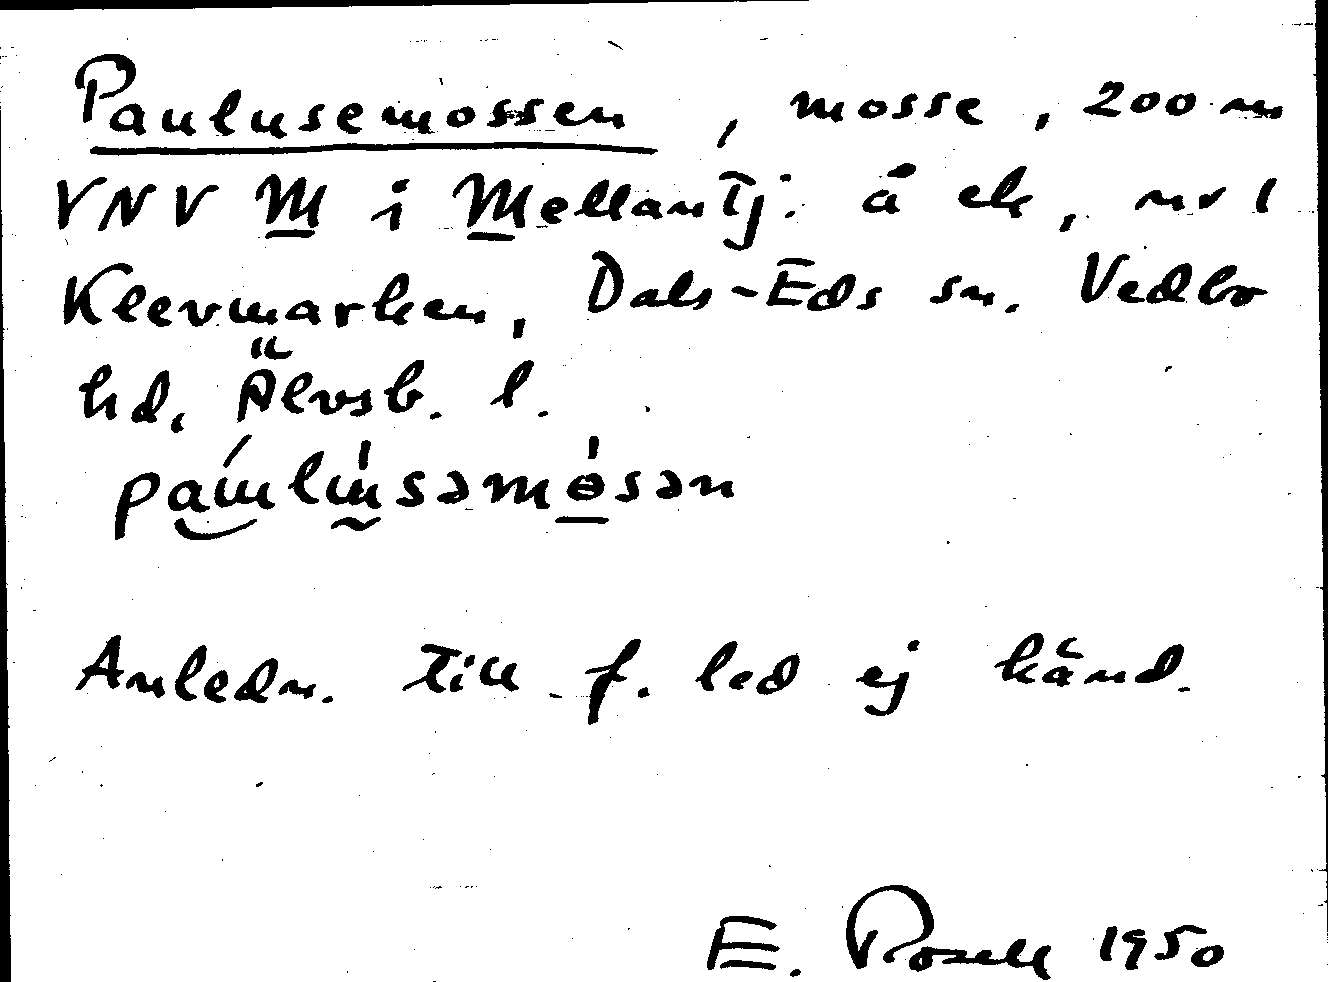 Paulusemossen, mosse, 200 m
VNV M i Mellantj. å ek, nv l
Kleevmarken, Dals-Eds sn. Vedbo
hd. Älvsb. l.
paulusəmɵsən
Anledn. till f. led ej känd.
E. Rosell 1950